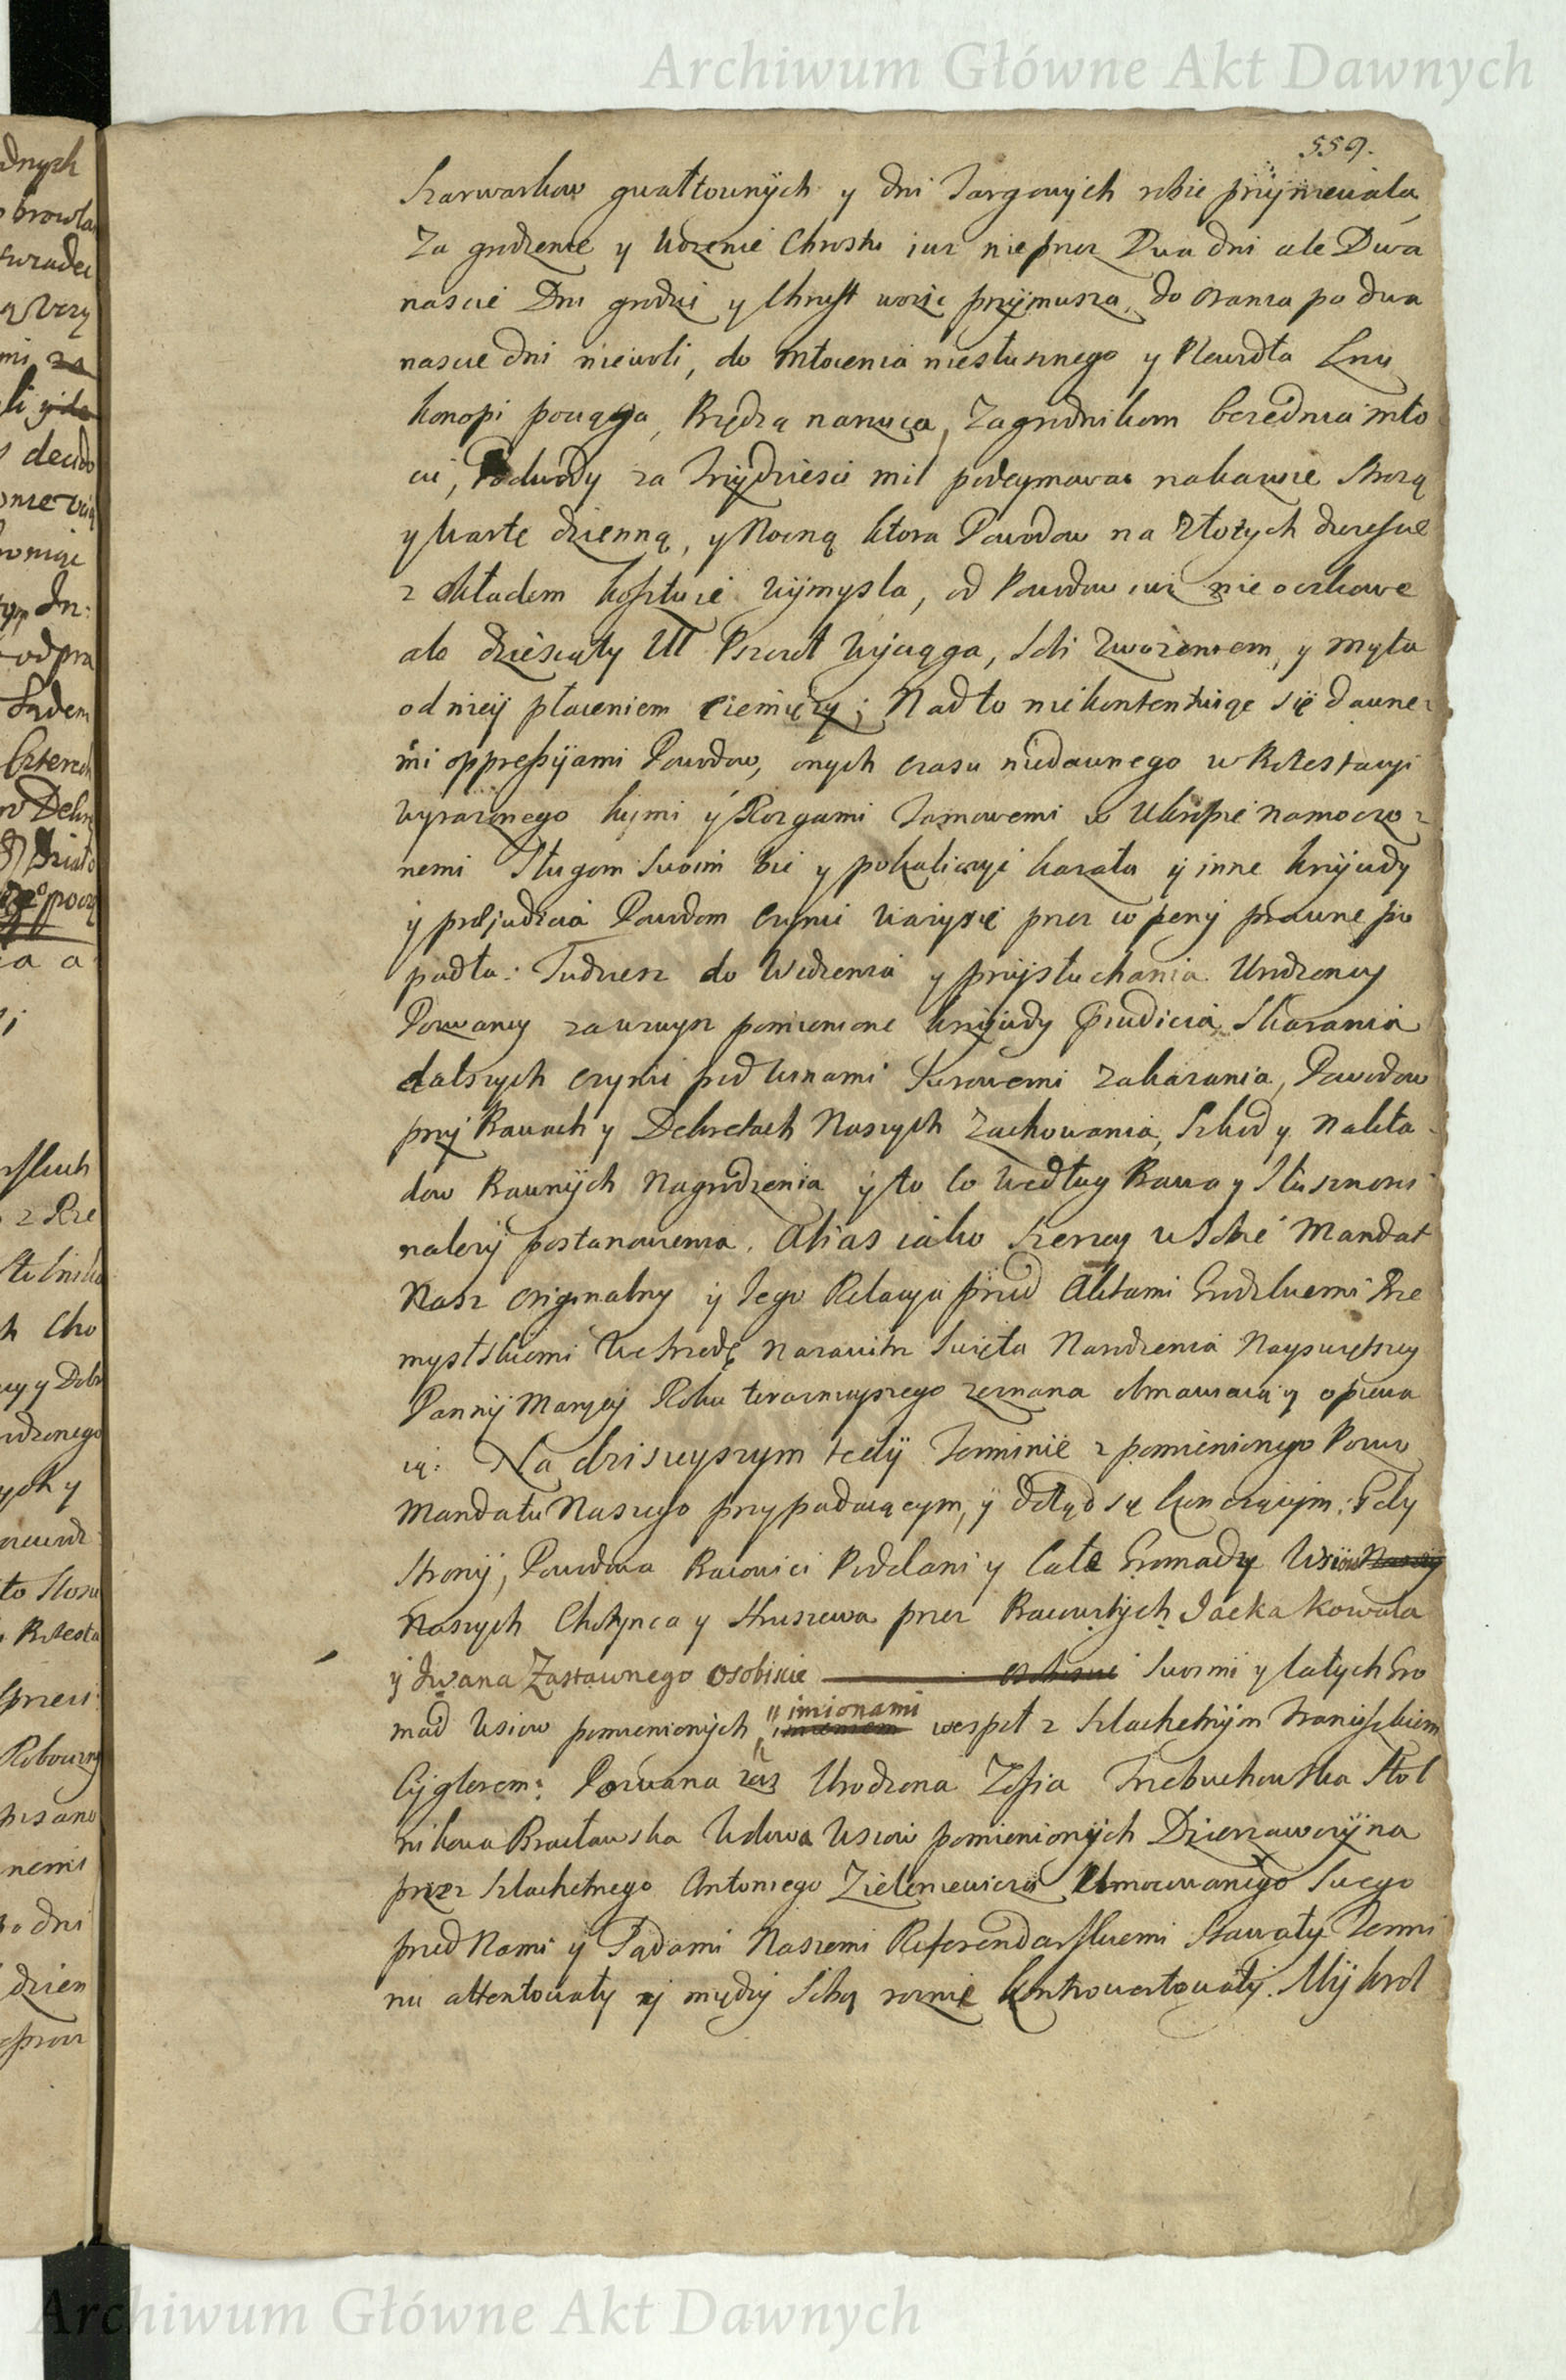 Archiwum Główne Akt Dawnych
559.
Szarwarkow gwałtownych y dni Targowych robic przÿniewala
Za grodzenie y wozenie Chrostu iuz nie przez Dwa dni ale Dwa
nascie Dni grodzic y Chrust wozic przÿmusza, do orania po dwa
nascie dni niewoli, do młocenia niesłusznego y Pławidła Lnu
konopi pociąga, Przędzą narzuca, Zagrodnikom bezednia mło
cic, Podwody za Trzÿdziesci mil podeymowac nakazuie Strozą
y warte dzienną, y Nocną ktora Powodow na Złotych dwiescie
z okładem kosztuie wÿmysla, od Powodow iuz nie oczkowe
ale dziesiąty Ul Pszczoł wÿciąga, Soli zwozeniem, y myta
od nieÿ płaceniem ciemięzy; Nad to nie kontentuiąc się dawne
mi oppressÿiami Powodow, onych czasu niedawnego w Protestacyi
wyrazonego kijmi ÿ Rozgami Tarnowemi w Ukropie namoczo
nemi Sługom Swoim bic y pokaliczyc kazała ÿ inne krzÿwdy
ÿ præjudicia Powodom czÿnic wazysię przez co w penÿ prawne po
padła: Tudziesz do Widzenia y przÿsłuchania Urodzoney
Pozwaney zawzwysz pomienione krzÿwdy Præiudicia, Skarania
dalszych czynic pod winami Surowemi zakazania, Powodow
przÿ Prawach y Dekretach Naszych Zachowania, Szkod y Nakła
dow Prawnÿch Nagrodzenia ÿ to co według Prawa y Słusznosci
nalezÿ postanowienia. Alias iako szerzey w Sobie Mandat
Nasz originalny ÿ Jego Relacya przed Aktami Grodzkiemi Prze
myslskiemi we Srzodę nazaiutrz Swięta Narodzenia Nayswiętszey
Pannÿ Maryeÿ Roku teraznieyszego zeznana obmawiaią y opiewa
ią: Na dzisieyszym tedÿ Terminie z pomienionego Pozwu
Mandatu Naszego przypadaiącym, ÿ dotąd się kończącÿm: Gdy
Stronÿ, Powodowa Pracowici Poddani y Całe Gromady Wsiow Naszÿ
Naszych Chotynca y Hruszewa przez Pracowitych Jacka Kowala
ÿ Iwana Zastawnego osobiscie osobiscie Swoimi y całych Gro
mad Wsiow pomienionych imionami wespoł z Szlachetnÿm Franciszkiem
Cÿglerem: Pozwana zas Urodzona Zofia Trzebuchowska Stol
nikowa Bracławska Wdowa Wsiow pomienionÿch Dzierzawczÿna
przez Szlachetnego Antoniego Zieleniewicza Umocowanego Swego
przed Nami ÿ Sądami Naszemi Referendarskiemi Stawały Termi
nu attentowały ÿ międzÿ Sobą roznie kontrowertowałÿ. Mÿ Krol
Archiwum Główne Akt Dawnych